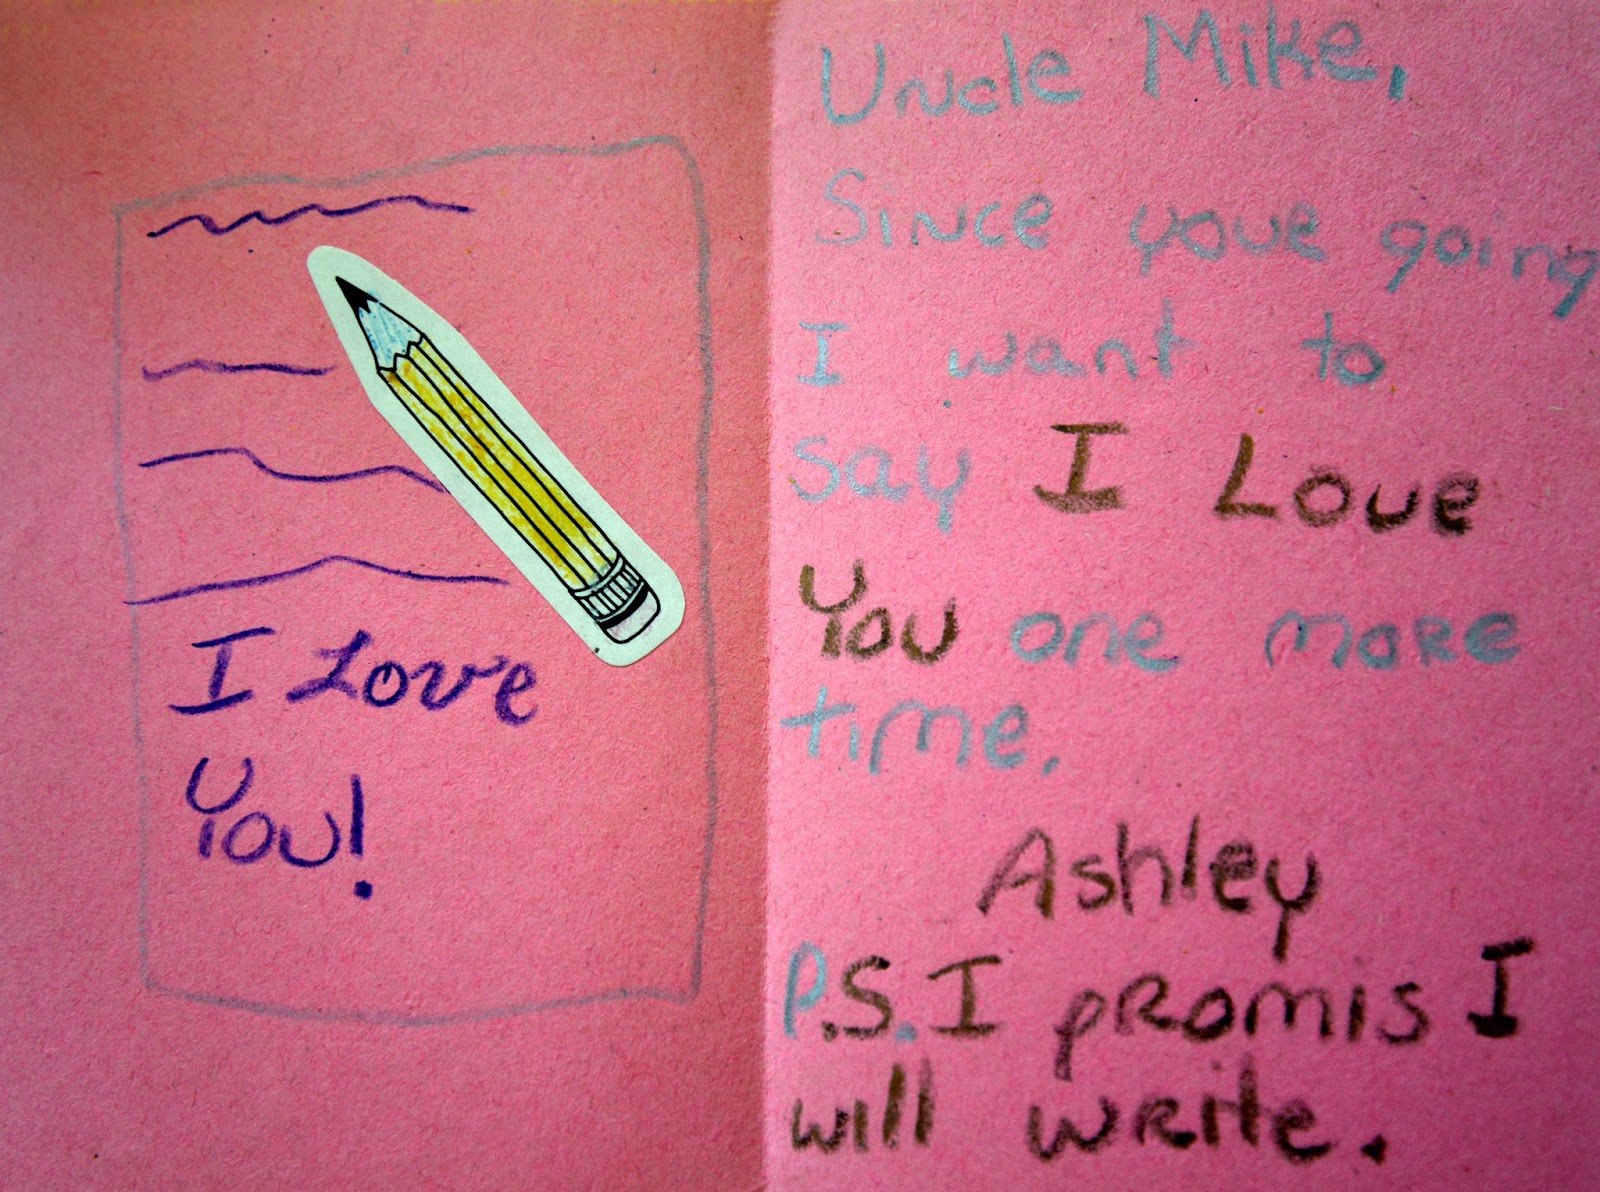 I Love
You!
Uncle Mike,
Since youe going
I want to
say I Love
You one more
time.
Ashley
P.S. I promis I
will write.